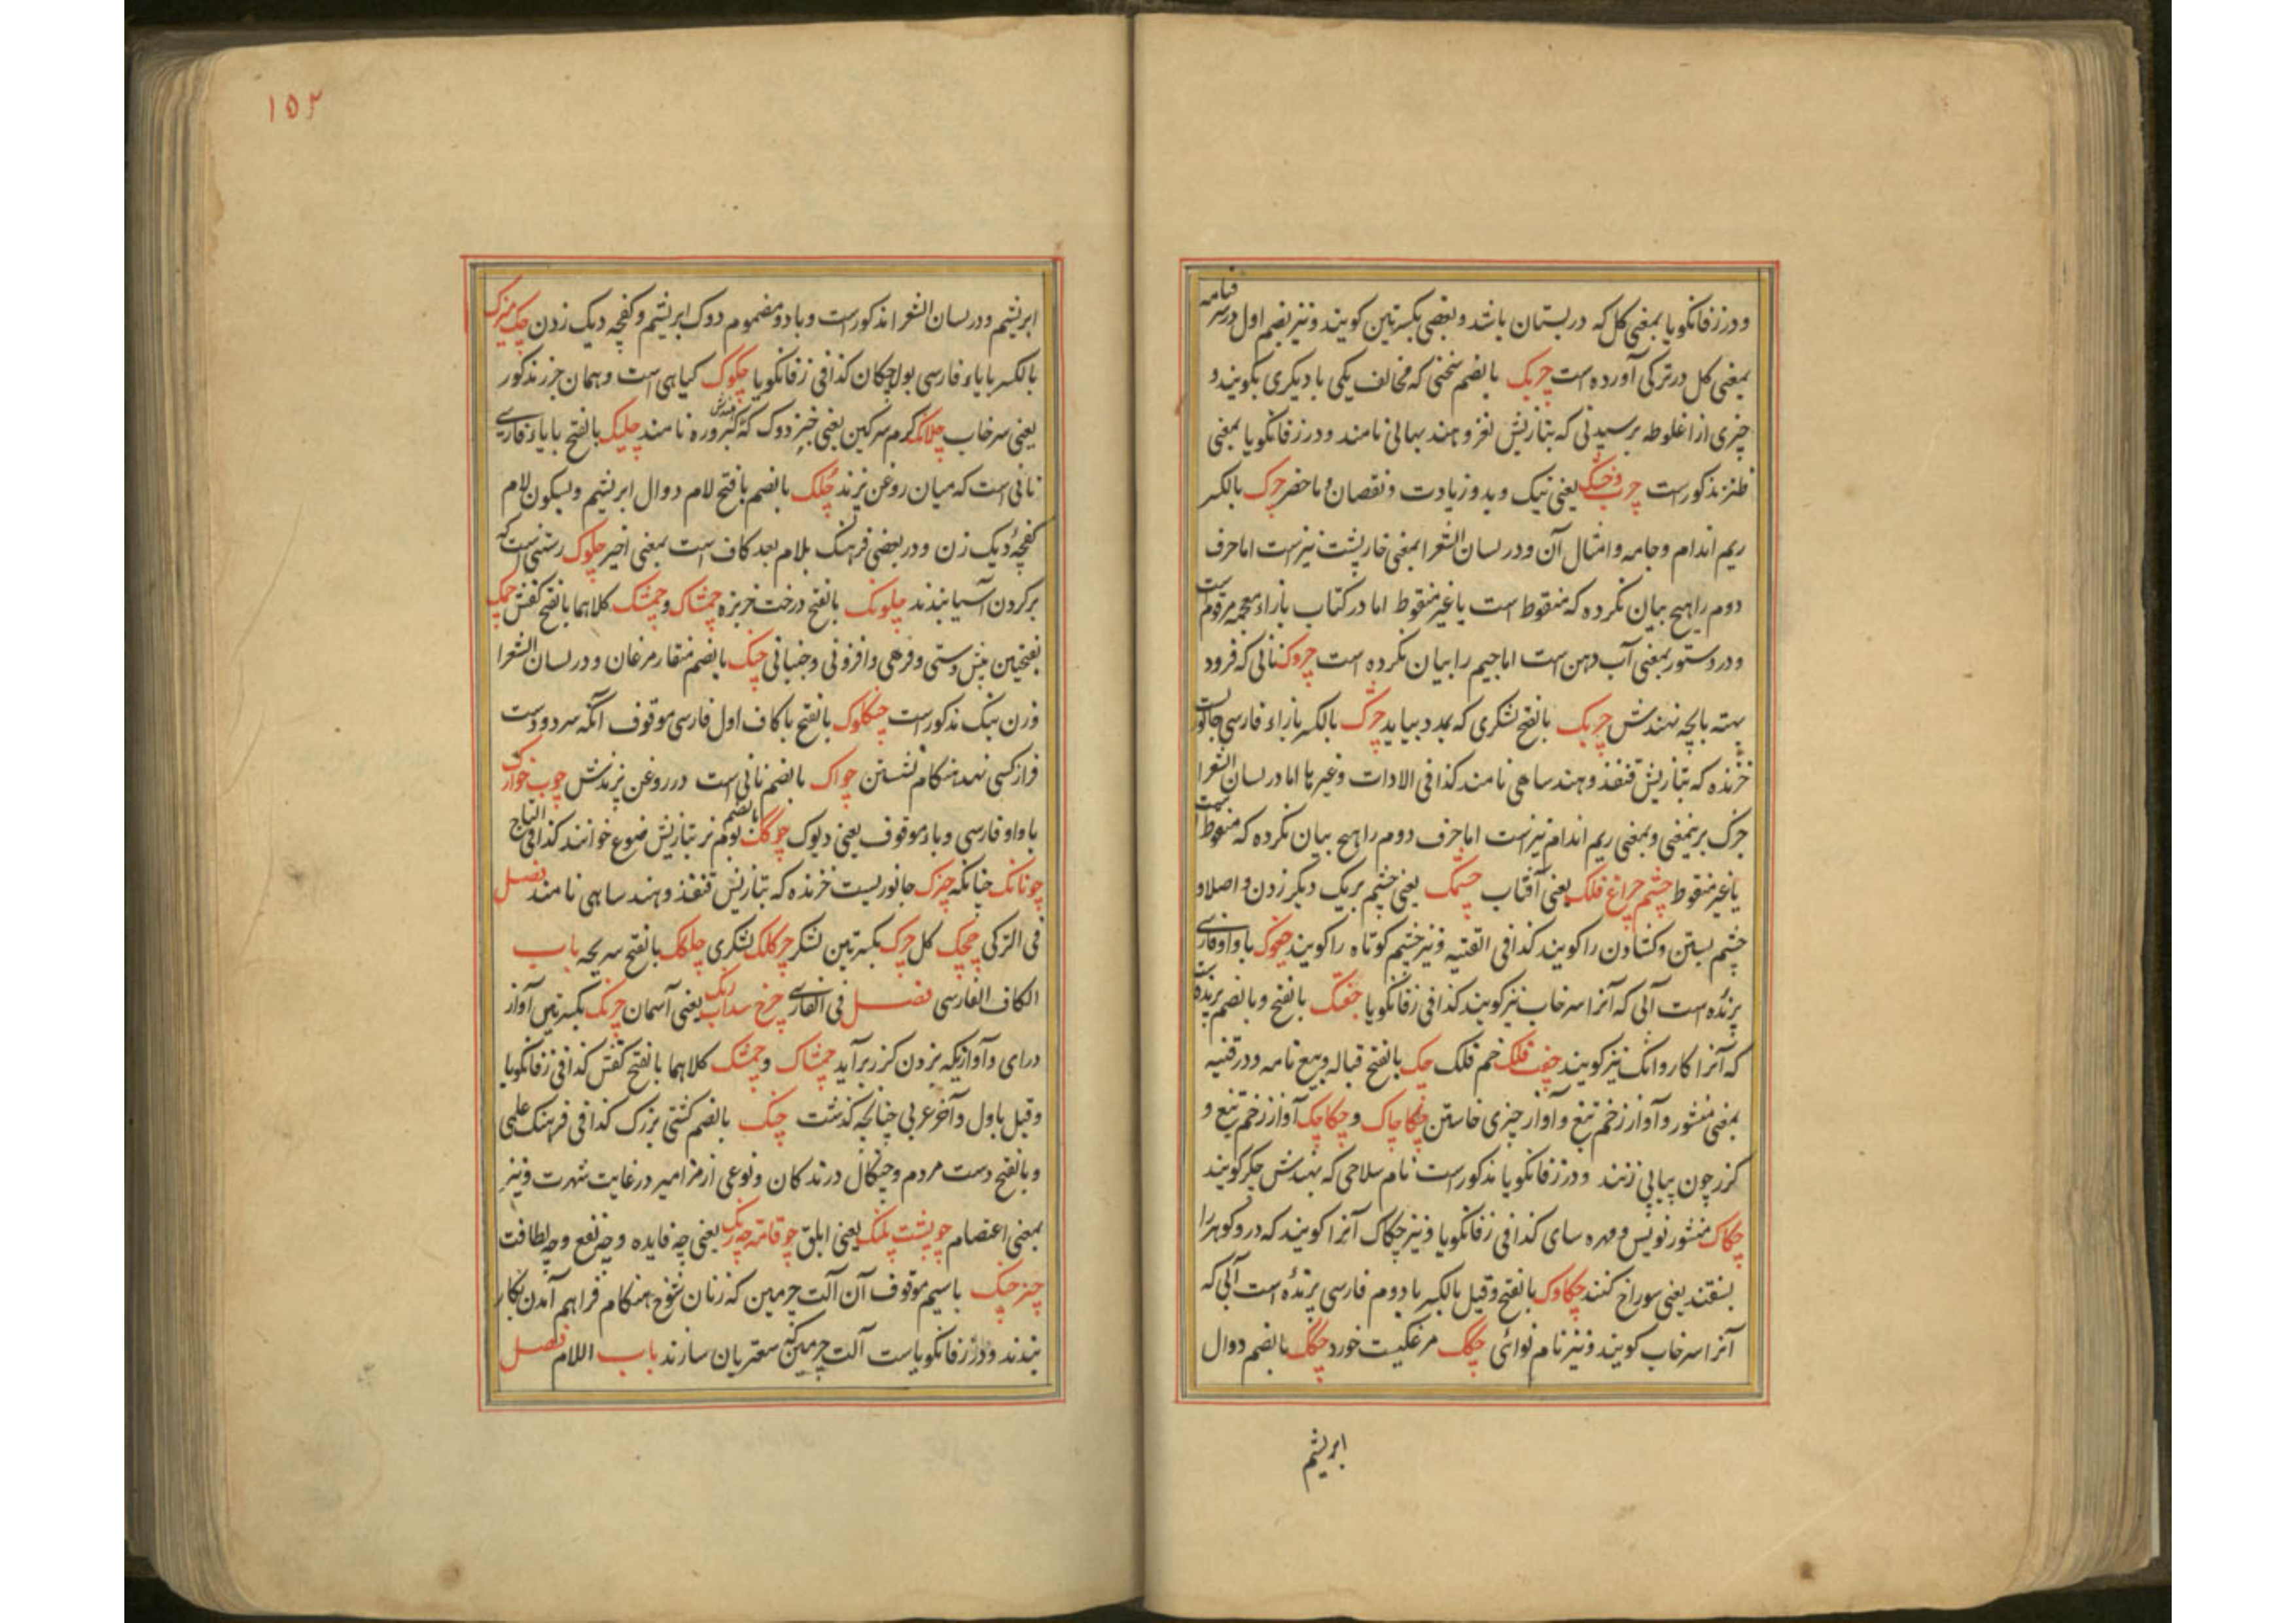 و در زفانکویا بمعنی کل که در بستان باشد و بعضی بکسرتین کویند و نیز بضم اول در شرفنامه
بمعنی کل در ترکی آورده است چربک بالضم سخنی که مخالف یکی با دیکری بکویند و
چیزی از اغلوطه پرسیدنی که بتازیش لغز و هند پهالی نامند و در زفانکویا بمعنی
طنز مذکور است چرب و خشک یعنی نیک و بد و زیادت و نقصان و ماحضر چرک بالکسر
ریم اندام و جامه و امثال آن و در لسان الشعرا بمعنی خارپشت نیز است اما حرف
دوم را هیچ بیان نکرده که منقوط است یا غیر منقوط اما در کتاب بازاء معجمه مرقوم است
و در دستور بمعنی آب دهن است اما جیم را بیان نکرده است چروک نانی که فرود
بهته بالچه نهندش چریک بالفتح لشکری که بمدد بیاید چژک بالکسر بازاء فارسی جانوریست
خزنده که بتازیش قنفذ و هند ساهی نامند کذا فی الادات و غیرها اما در لسان الشعرا
چرک برینمعنی و بمعنی ریم اندام نیز است اما حرف دوم را هیچ بیان نکرده که منقوط است
یا غیر منقوط چشم چراغ فلک یعنی آفتاب چشمک یعنی چشم بریک دیکر زدن و اصلا و
چشم بستن و کشادن را کویند کذا فی القنیه و نیز چشم کوتاه را کویند چغوک با واو فارسی
پرنده است آبی که آنرا سرخاب نیز کویند کذا فی زفانکویا چغنک بالفتح و بالضم پرنده است
که آنرا کاروانک نیز کویند چفت فلک خم فلک چک بالفتح قباله و بیع نامه و در قنیه
بمعنی منشور و آواز زخم تیغ و آواز چیزی خاستن چکاچاک و چکاچک آواز زخم تیغ و
کزر چون پیاپی زنند و در زفانکویا مذکور است نام سلاحی که بهندش چکر کویند
چکاک منشور نویس و مهره سای کذا فی زفانکویا و نیز چکاک آنرا کویند که در و کوهر را
بسفتند یعنی سوراخ کنند چکاوک بالفتح و قیل بالکسر با دوم فارسی پرنده است آبی که
آنرا سرخاب کویند و نیز نام نوائی چکک مرغکیست خورد چکک بالضم دوال
ابریشم
١٥٢
ابریشم و در لسان الشعرا مذکور است و با دو مضموم دوک ابریشم و کفچه دیک زدن چک میزک
بالکسر با یاء فارسی بول چکان کذا فی زفانکویا چکوک کیاهی است و همان جزر مذکور
یعنی سرخاب چلانک کرم سرکین یعنی خبزدوک که کبروره نامند چلپک بالفتح با یاء فارسی
نانی است که میان روغن پزند چلک بالضم با فتح لام دوال ابریشم و بسکون لام
کفچهٔ دیک زن و در بعضی فرهنک بلام بعد کاف است بمعنی اخیر چلوک رسنی است که
بر کردن آسیا بندند چلونک بالفتح درخت خربزه چمشاک و چمشک کلاهما بالفتح کفش چمک
بفتحتین پیش دستی و فرهی و افزونی و چنبانی چنک بالضم منقار مرغان و در لسان الشعرا
وزن بنک مذکور است چنکلوک بالفتح با کاف اول فارسی موقوف آنکه سر دو دست
فراز کسی نهد هنکام نشستن چواک بالضم نانی است در روغن پزندش چوب خوارک
با واو فارسی و باء موقوف یعنی دیوک چوکک بالضم بوم نر بتازیش ضوع خوانند کذا فی التاج
چونانک چنانکه چیزک جانوریست خزنده که بتازیش قنفذ و هند ساهی نامند فصل
فی الترکی چچک کل چرک بکسرتین لشکر چرکلک لشکری چلکک بالفتح سریجه باب
الکاف الفارسی فصل فی الفارسی چرخ سداب رنک یعنی آسمان چرنک بکسرتین آواز
درای و آوازیکه بزدن کزر برآید چمشاک و چمشک کلاهما بالفتح کفش کذا فی زفانکویا
و قیل باول و آخر عربی چنانچه کذشت چنک بالضم کشتی بزرک کذا فی فرهنک علمی
و بالفتح دست مردم و چنکال درندکان و نوعی از مزامیر در غایت شهرت و نیز
بمعنی اعتصام چو پشت پلنک یعنی ابلق چو قامته چه رنک یعنی چه فایده و چه نفع و چه لطافت
چنر چنک باسیم موقوف آن آلت چرمین که زنان شوخ هنکام فراهم آمدن بکار
بندند و در زفانکویاست آلت چرمین که سعتریان سازند باب اللام فصل